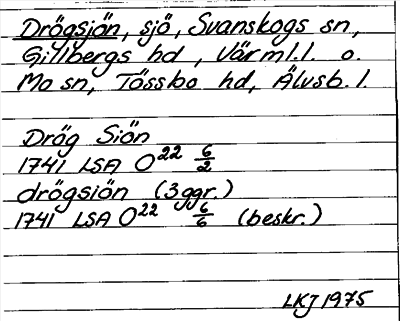 Drögsjön, sjö, Svanskogs sn,
Gillbergs hd, Värml.l. o.
Mo sn, Tössbo hd, Älvsb.l.
Drög Siön
1741 LSA O²² 6/2
drögsiön (3ggr.)
1741 LSA O²² 6/6 (beskr.)
LKJ 1975